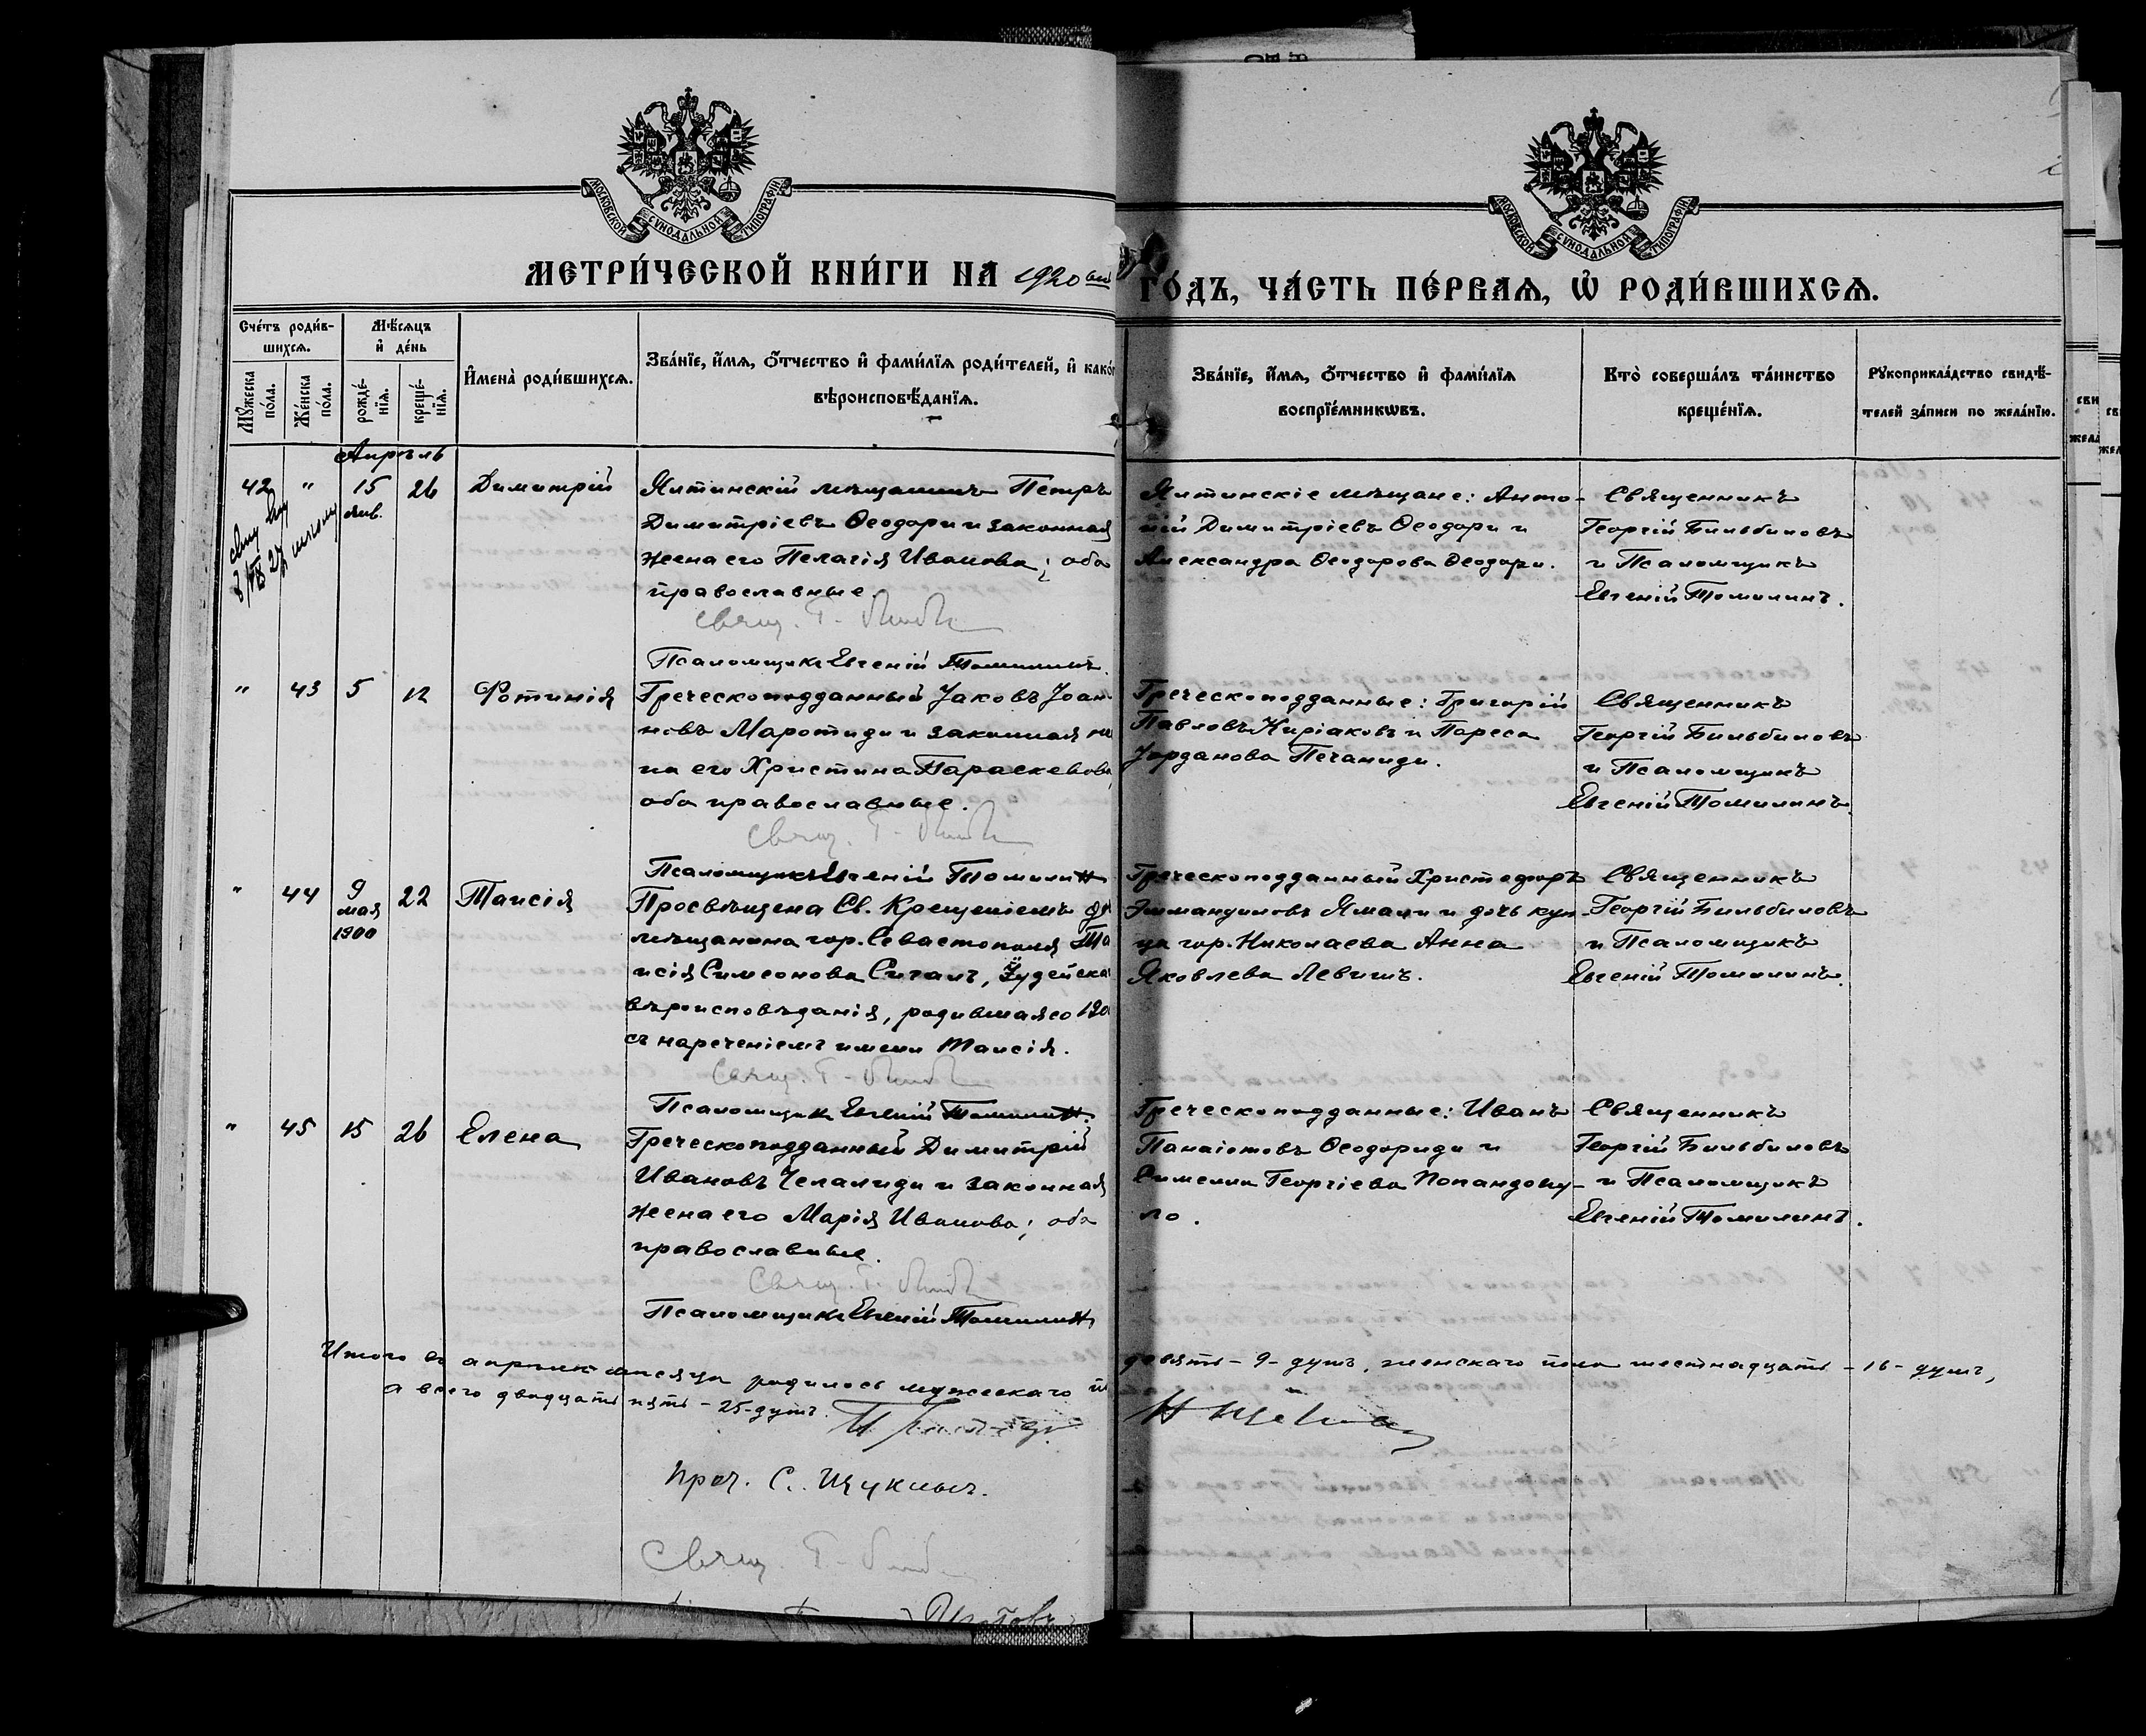 МОСКОВСКОЙ СУНОДАЛЬНОЙ ТИПОГРАФІИ
МОСКОВСКОЙ СУНОДАЛЬНОЙ ТИПОГРАФІИ
МЕТРИ́ЧЕСКОЙ КНИ́ГИ НА 1920 ГО́ДЪ, ЧА́СТЬ ПЕ́РВАѦ, Ѽ РОДИ́ВШИХСѦ.
Сче́тъ роди́в-
шихсѧ.
Мѣ́сѧцъ
и҆ де́нь
Мꙋ́жеска по́ла.
Же́нска по́ла.
рожде́-нїѧ.
креще́-нїѧ.
И҆мена̀ роди́вшихсѧ.
Зва́нїе, и҆́мѧ, ѻ҆́тчество и҆ фами́лїѧ роди́телей, и҆ како́
вѣроисповѣ́данїѧ.
Зва́нїе, и҆́мѧ, ѻ҆́тчество и҆ фами́лїѧ
воспрїе́мникѡвъ.
Кто̀ соверша́лъ та́инство
креще́нїѧ.
Рꙋкоприкла́дство свидѣ́-
телей за́писи по жела́нїю.
Апрѣль
42 " 15 янв. 26
Димитрій
Ялтинскій мѣщанинъ Петръ
Димитріевъ Ѳеодори и законная
жена его Пелагія Иванова; оба
православные.
Свящ. Г.
Псаломщикъ Евгеній Томилинъ.
Ялтинскіе мѣщане: Анто-
ній Димитріевъ Ѳеодори и
Александра Ѳеодорова Ѳеодори.
Священникъ
Георгій Бильбиловъ
и Псаломщикъ
Евгеній Томилинъ.
" 43 5 12
Фотинія
Греческоподданный Іаковъ Іоан-
новъ Маротиди и законная же
на его Христина Параскевова
оба православные.
Свящ. Г.
Псаломщикъ Евгеній Томилинъ
Греческоподданные: Григорій
Павловъ Киріаковъ и Пареса
Іорданова Печаниди.
Священникъ
Георгій Бильбиловъ
и Псаломщикъ
Евгеній Томилинъ.
" 44 9 мая 1900 22
Таисія
Просвѣщена Св. Крещеніемъ
мѣщанина гор. Севастополя Та
исія Симеонова Сигалъ, Іудейска
вѣроисповѣданія, родившаяся 190
съ нареченіемъ имени Таисія.
Свящ. Г.
Псаломщикъ Евгеній Томилинъ.
Греческоподданный Христофоръ
Эммануиловъ Ямали и дочь куп-
ца гор. Николаева Анна
Яковлева Левитъ.
Священникъ
Георгій Бильбиловъ
и Псаломщикъ
Евгеній Томилинъ.
" 45 15 26
Елена
Греческоподданный Димитрій
Ивановъ Челалиди и законная
жена его Марія Иванова; оба
православные.
Свящ. Г.
Псаломщикъ Евгеній Томилинъ
Греческоподданные: Иванъ
Панаіотовъ Ѳеодориди и
Симелла Георгіева Попандопу-
ло.
Священникъ
Георгій Бильбиловъ
и Псаломщикъ
Евгеній Томилинъ.
Итого въ апрѣлѣ мѣсяцѣ родилось мужескаго п девять - 9 - душъ, женскаго пола шестнадцать - 16 - душъ,
а всего двадцать пять - 25 - душъ.
Прот. С. Щукинъ.
Свящ. Г.